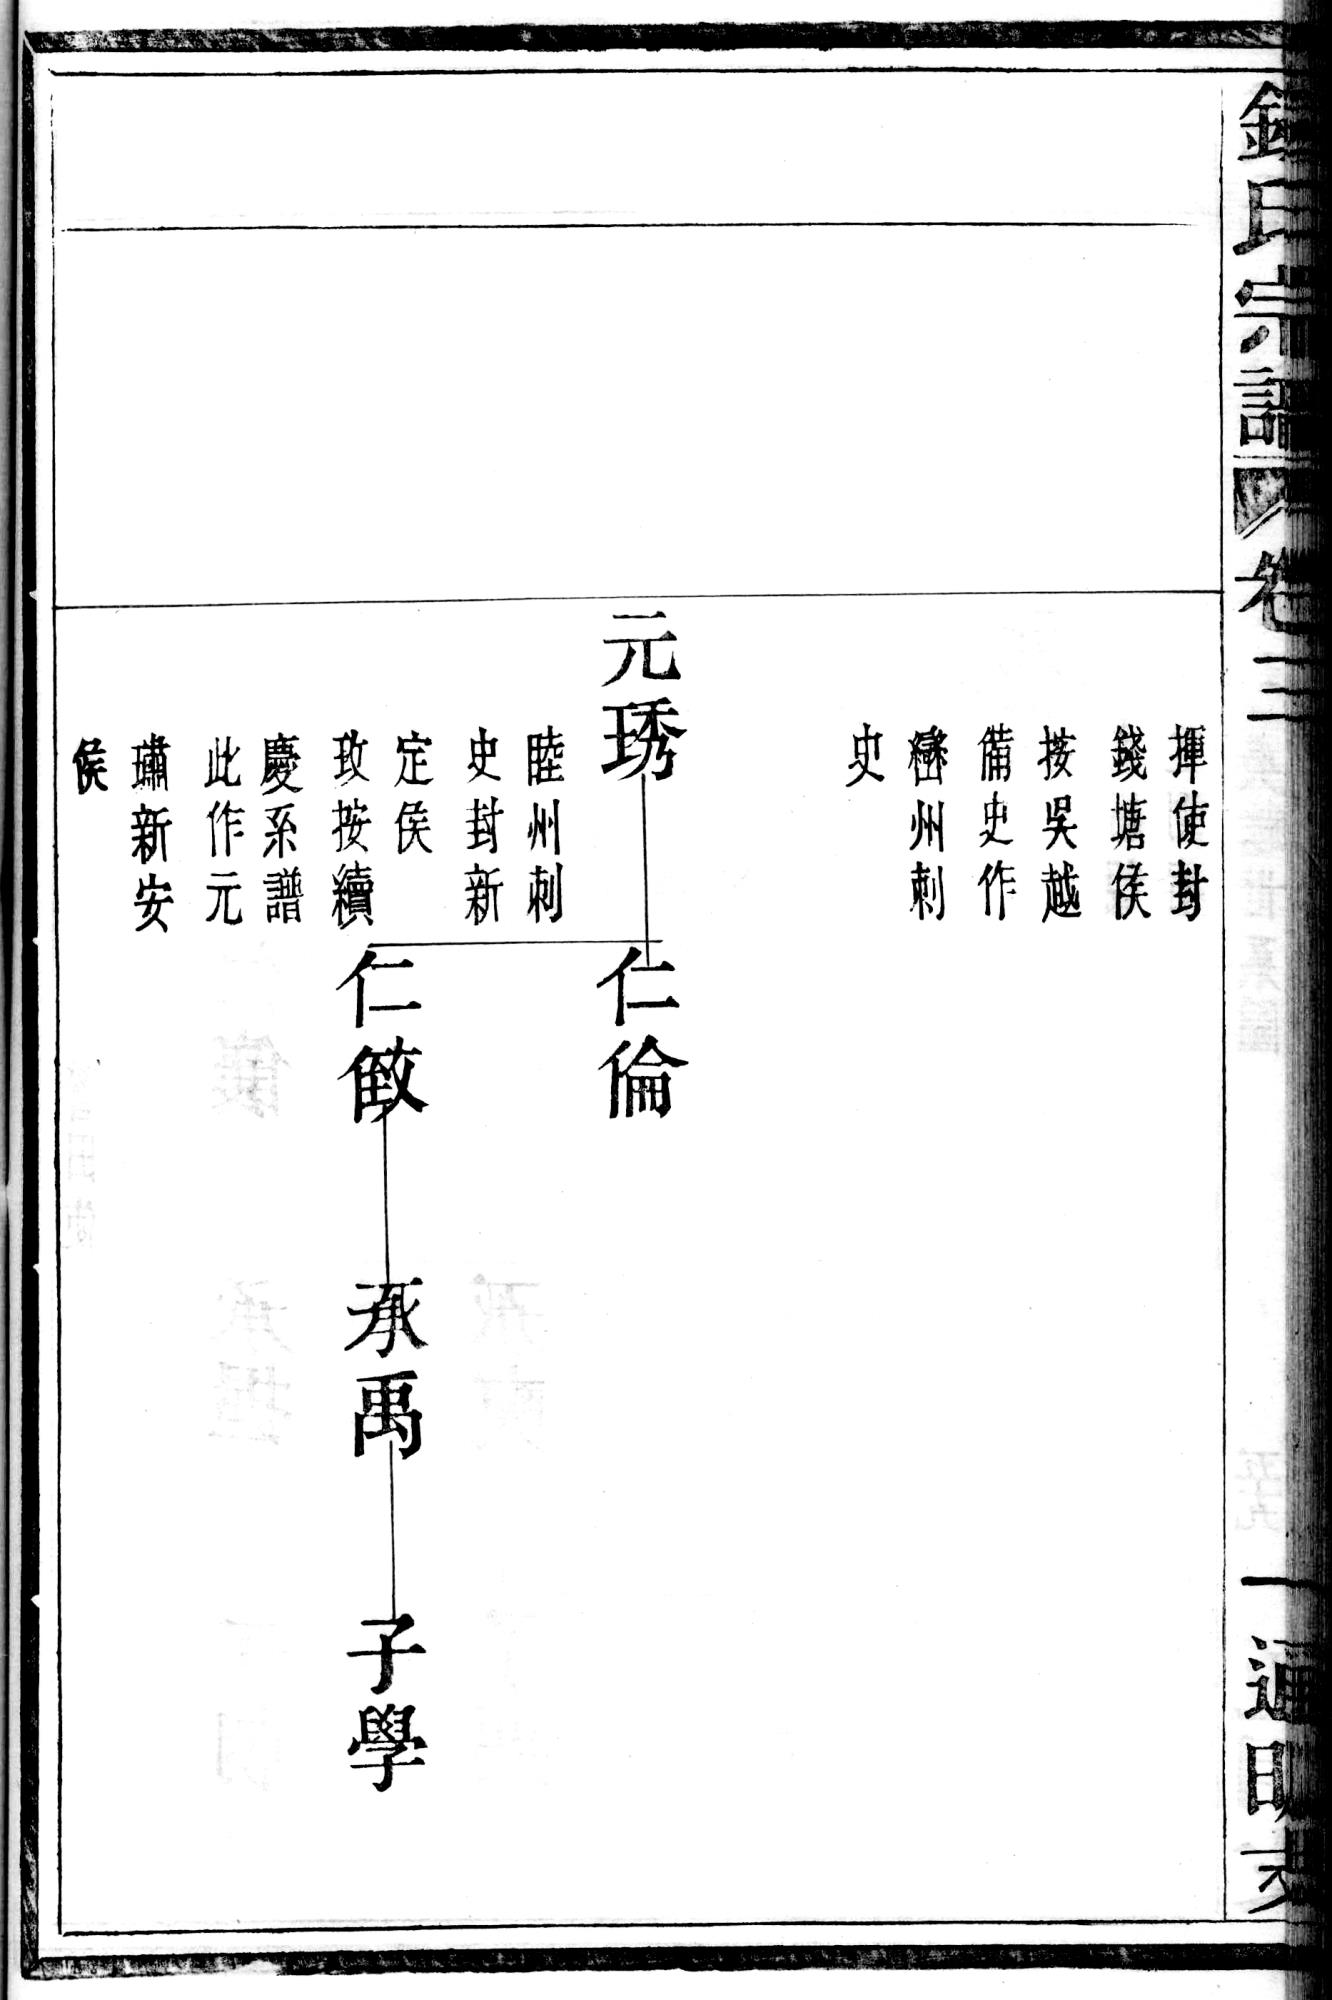 錢氏宗譜 卷三 一 通明支
揮使封
錢塘侯
按吳越
備史作
巒州刺
史
元琇
睦州刺
史封新
定侯
攷按續
慶系譜
此作元
璛新安
侯
仁倫
仁儆
承禹
子學